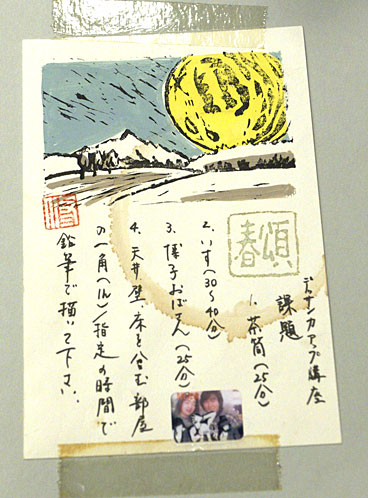 頌春
デッサン力アップ講座
課題
1. 茶筒(25分)
2. いす(30〜40分)
3. 様子おばさん(25分)
4. 天井、壁、床を含む部屋
の一角(1h)/指定の時間で
鉛筆で描いて下さい。